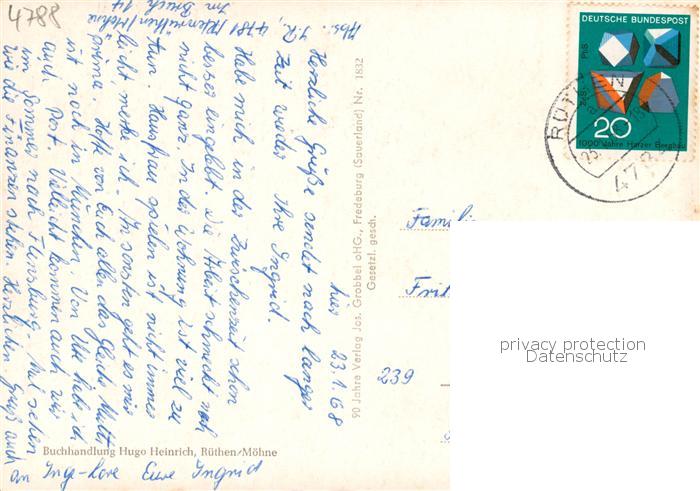 4788
Abs. I.R., 4781
Im Bruch 14
hier 23.1.68
Herzliche Grüße sendet nach langer
Zeit wieder Ihre Ingrid.
Habe mich in der Zwischenzeit schon
besser eingelebt. Die Arbeit schmeckt noch
nicht ganz. In der Wohnung ist viel zu
tun. Hausfrau spielen ist nicht immer
leicht merke ich. Ansonsten geht es mir
prima. Hoffe von Euch allen das Gleiche. Mutti
ist noch in München. Von Ute hab ich
auch Post. Vielleicht kommen auch wir
im Sommer nach Flensburg. Mal sehen
wie die Finanzen stehen. Herzlichen Gruß auch
an Inge-Lore Eure Ingrid
Buchhandlung Hugo Heinrich, Rüthen/Möhne
90 Jahre Verlag Jos. Grobbel oHG., Fredeburg (Sauerland) Nr. 1832
Gesetzl. gesch.
DEUTSCHE BUNDESPOST
20
1000 Jahre Harzer Bergbau
Famili
239
privacy protection
Datenschutz